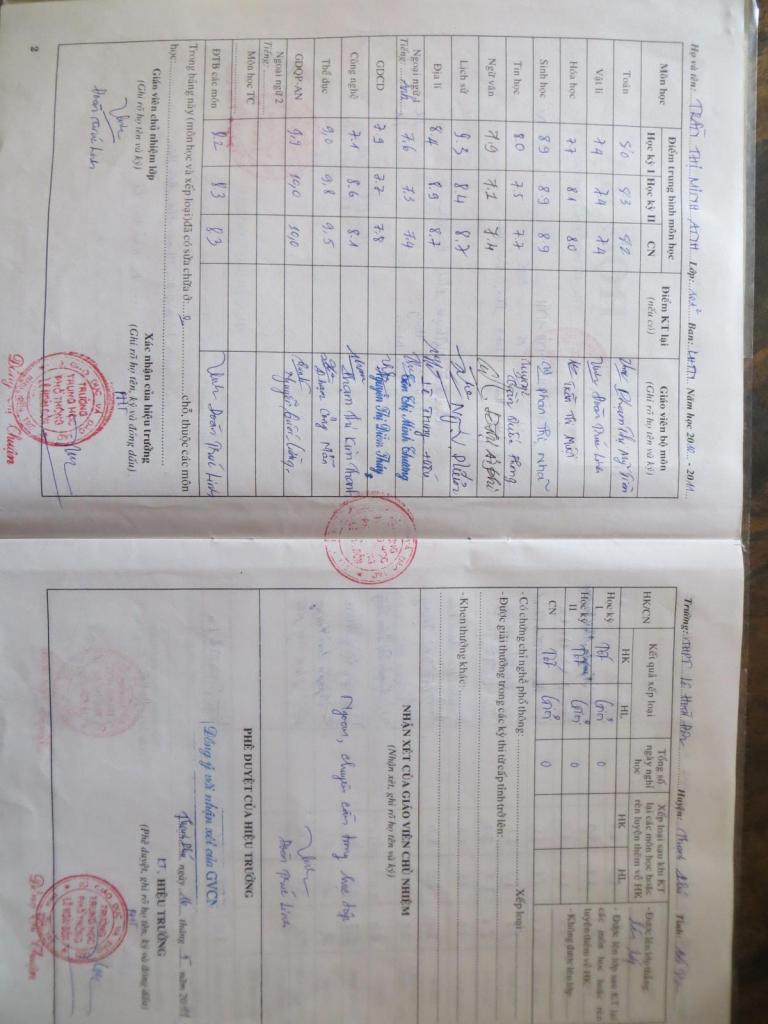 Họ và tên: TRẦN THỊ MINH ANH Lớp: 10A2 Ban: Năm học 2010 - 2011
Môn học Điểm trung bình môn học Điểm KT lại (nếu có) Giáo viên bộ môn (Ghi rõ họ tên và ký)
Học kỳ I Học kỳ II CN
Toán 9,0 9,3 9,2
Vật lí 7.4 7.4 7.4 Đoàn Thuế Linh
Hóa học 7.7 8.1 8.0 Trần Thị Mười
Sinh học 8.9 8.9 8.9 Phan Thị Nhã
Tin học 8.0 7.5 7.7
Ngữ văn 7.9 7.2 7.4
Lịch sử 9.3 8.4 8.7
Địa lí 8.4 8.9 8.7 Lê Trung Hiếu
Ngoại ngữ 1 Tiếng: Anh 7.6 7.3 7.4 Trần Thị Minh Chương
GDCD 7.9 7.7 7.8 Nguyễn Thị Diễm Thúy
Công nghệ 7.1 8.6 8.1 Phạm Thị Kim Thanh
Thể dục 9,0 9,8 9.5
GDQP-AN 9,9 10,0 10,0
Ngoại ngữ 2
Tiếng:
Môn học TC
ĐTB các môn 8.2 8.3 8.3 Đoàn Thuế Linh
Trong bảng này (môn học và xếp loại) đã có sửa chữa ở: chỗ, thuộc các môn
học:
Giáo viên chủ nhiệm lớp
(Ghi rõ họ tên và ký)
Đoàn Thuế Linh
Xác nhận của hiệu trưởng
(Ghi rõ họ tên, ký và đóng dấu)
2
Trường: THPT Lê Hoài Đôn Huyện: Thạnh Phú Tỉnh: Bến Tre
HK/CN Kết quả xếp loại Tổng số ngày nghỉ học Xếp loại sau khi KT lại các môn học hoặc rèn luyện thêm về HK
HK HL HK HL
Học kỳ I Tốt Giỏi 0
Học kỳ II Tốt Giỏi 0
CN Tốt Giỏi 0
- Được lên lớp thẳng:
Lên lớp
- Được lên lớp sau KT lại
các môn học hoặc rèn
luyện thêm về HK
- Không được lên lớp
- Có chứng chỉ nghề phổ thông: Xếp loại:
- Được giải thưởng trong các kỳ thi từ cấp tỉnh trở lên:
- Khen thưởng khác:
NHẬN XÉT CỦA GIÁO VIÊN CHỦ NHIỆM
(Nhận xét, ghi rõ họ tên và ký)
Ngoan, chuyên cần trong học tập
Đoàn Thuế Linh
PHÊ DUYỆT CỦA HIỆU TRƯỞNG
Đồng ý với nhận xét của GVCN
Thạnh Phú, ngày tháng 5 năm 2011
KT. HIỆU TRƯỞNG
PHT
(Phê duyệt, ghi rõ họ tên, ký và đóng dấu)